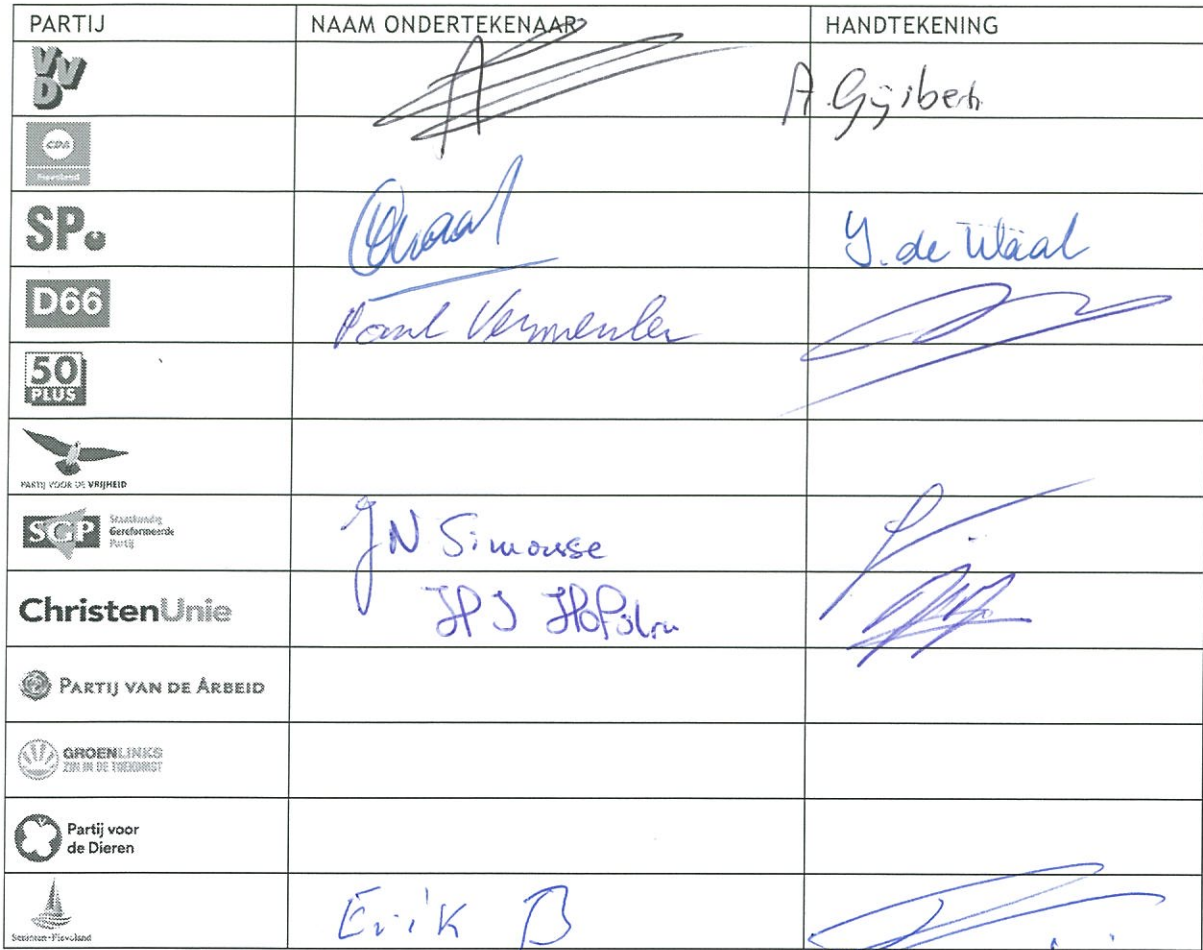 PARTIJ NAAM ONDERTEKENAAR HANDTEKENING
VVD A. Gijsberts
CDA
Flevoland
SP. J. de Waal
D66 Paul Vermeulen
50
PLUS
PARTIJ VOOR DE VRIJHEID
SGP Staatkundig
Gereformeerde
Partij
JN Simonse
ChristenUnie
PARTIJ VAN DE ARBEID
GROENLINKS
ZIN IN DE TOEKOMST
Partij voor
de Dieren
Senioren+Flevoland Erik B